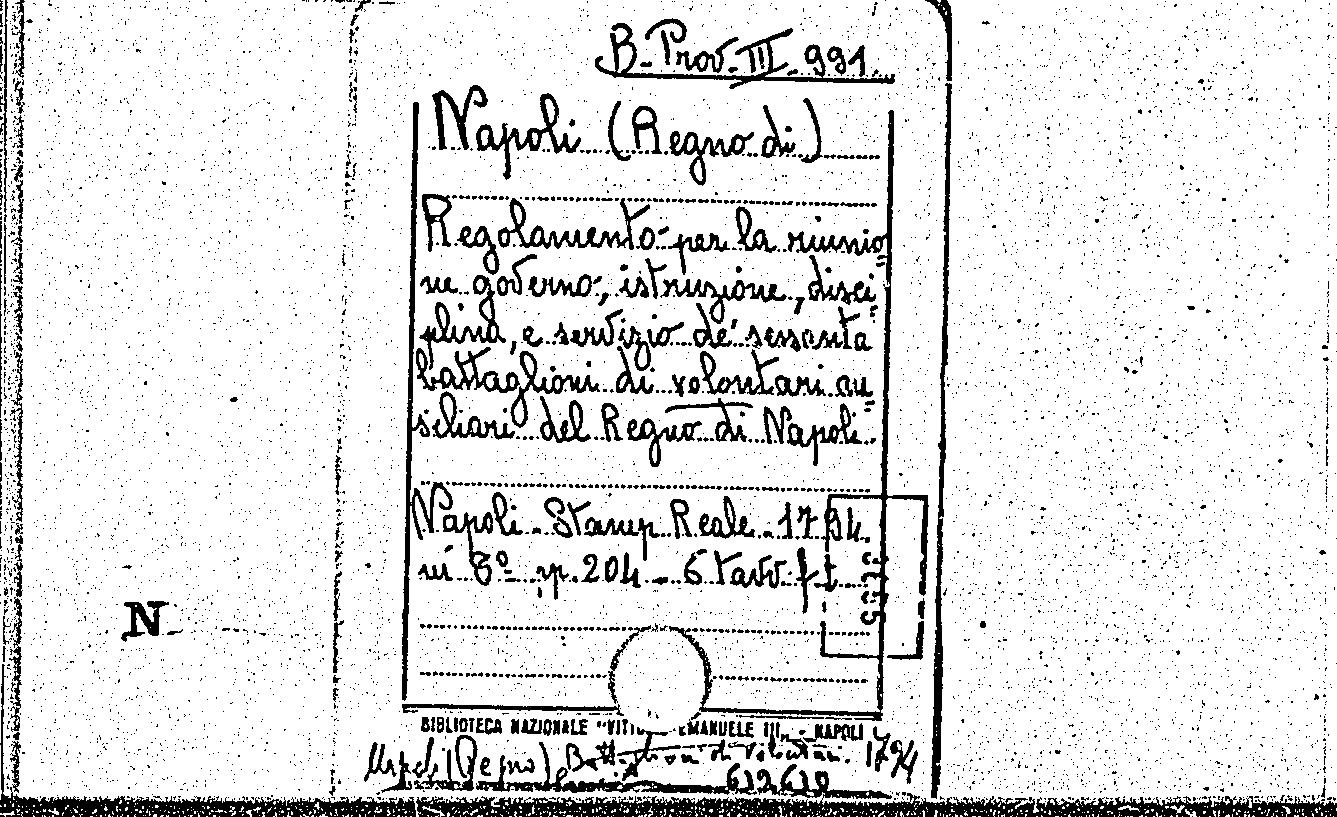 B. Prov. III. 991.
Napoli (Regno di)
Regolamento per la riunio
ne governo, istruzione, disci
plina, e servizio de' sessanta
battaglioni di volontari au
siliari del Regno di Napoli.
Napoli. Stamp Reale. 1794.
in 8º pp. 204 - 6 tavv f t
N
BIBLIOTECA NAZIONALE "VITT EMANUELE III„ - NAPOLI
Napoli (Regno) Battaglioni di Volontari. 1794
612610